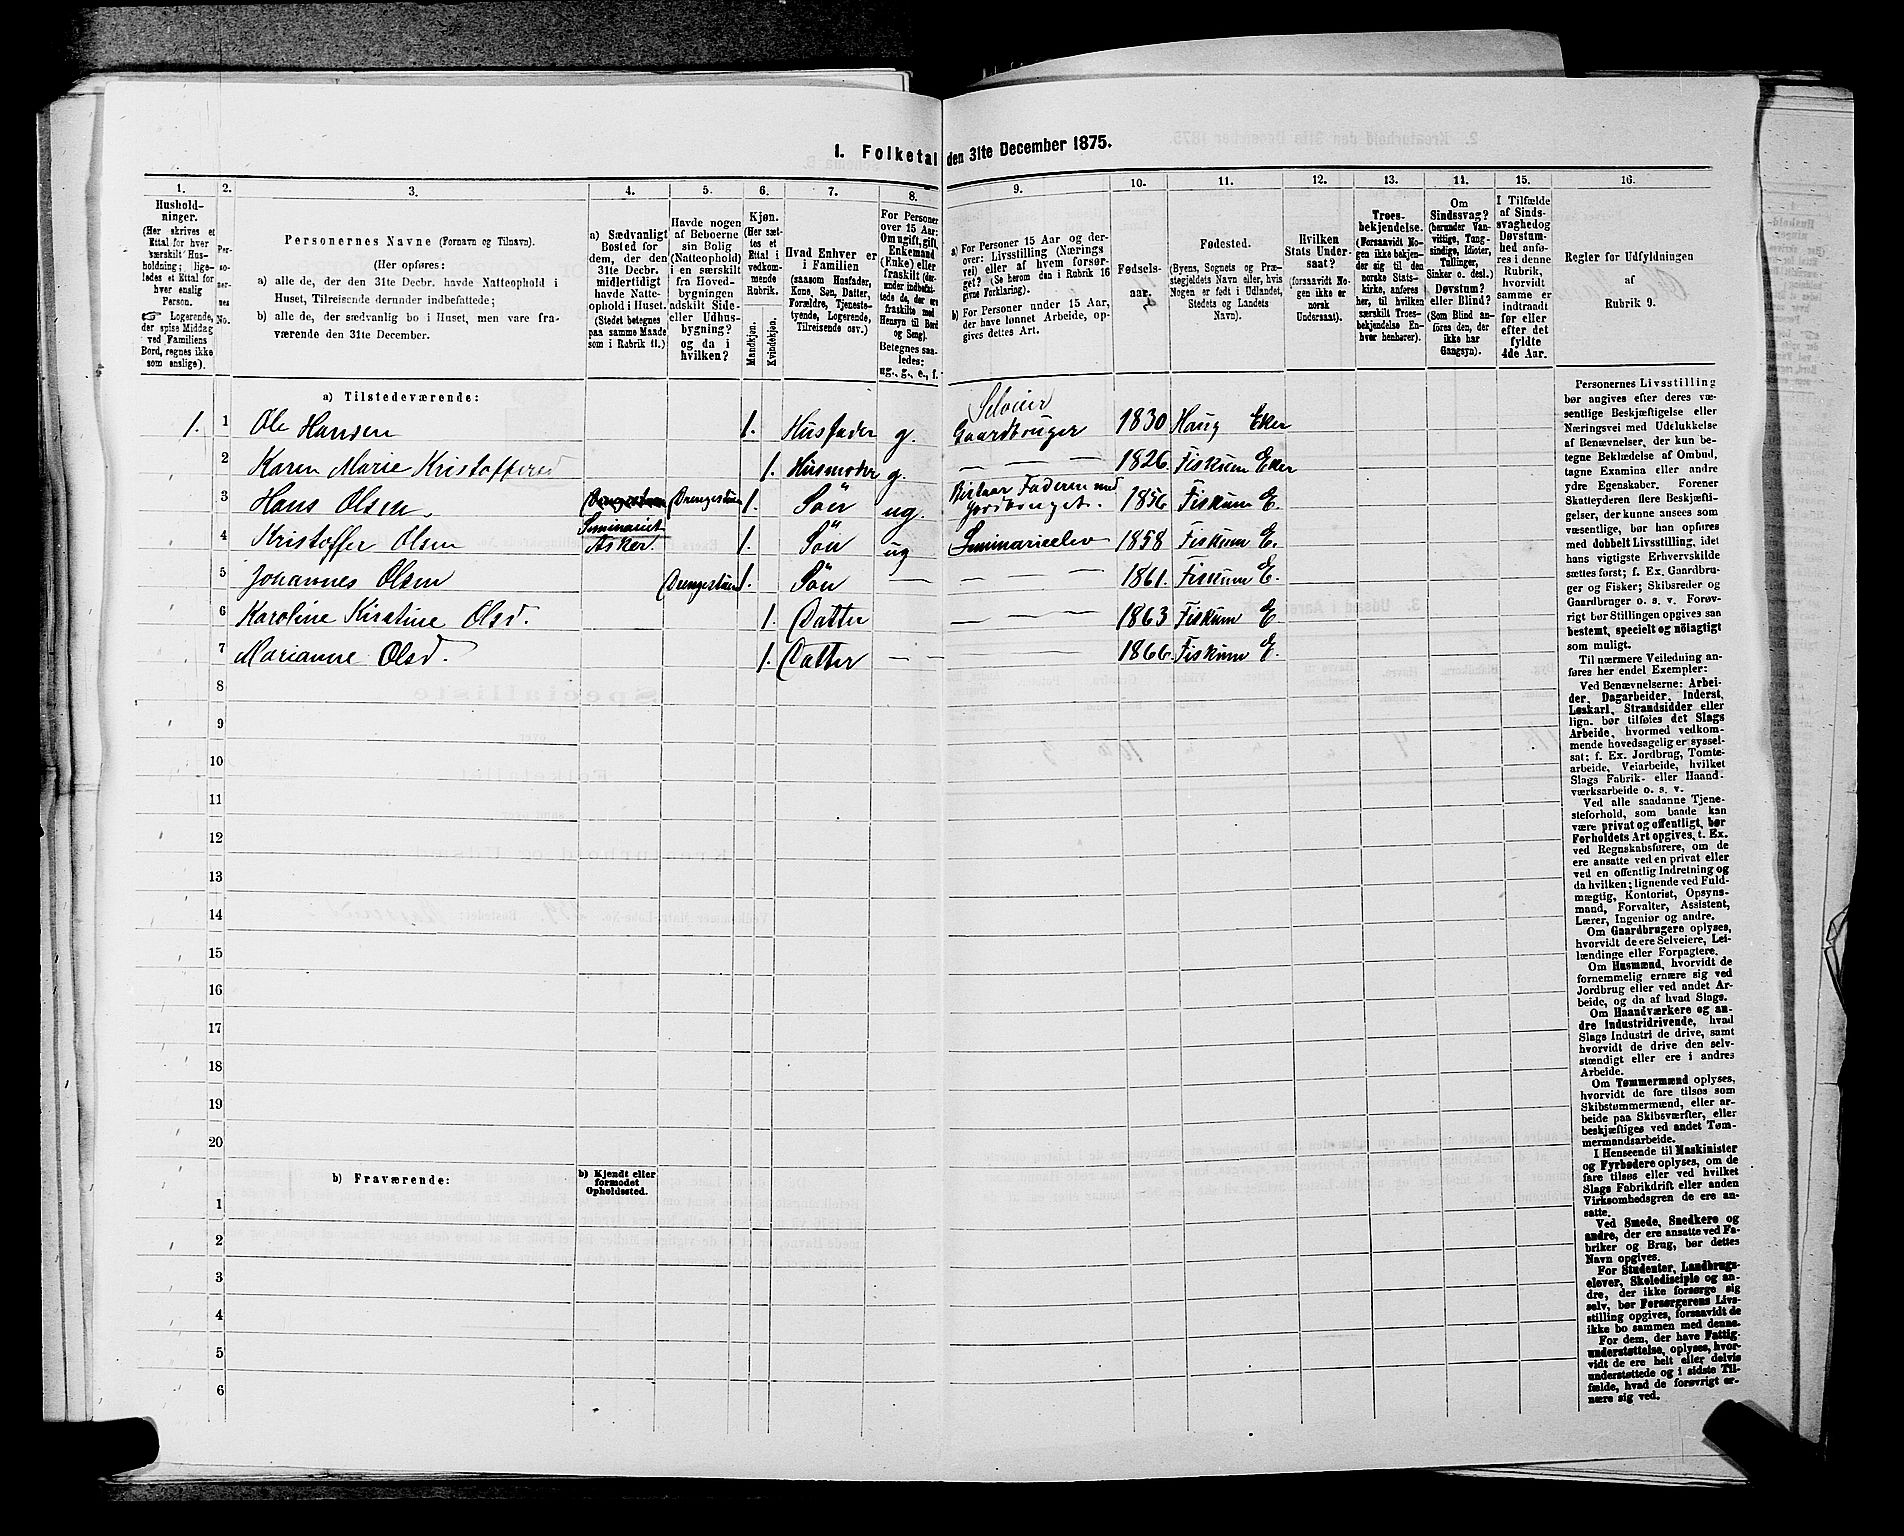 1. Folketal den 31te December 1875.
1. 2. 3. 4. 5. 6. 7. 8. 9. 10. 11. 12. 13. 14. 15. 16.
Hushold-
ninger.
(Her skrives et
Ettal for hver
særskilt Hus-
holdning; lige-
ledes et Ettal for
hver enslig
Person.
☞ Logerende,
der spise Middag
ved Familiens
Bord, regnes ikke
som enslige).
Per-
so-
ner-
nes
No.
Personernes Navne (Fornavn og Tilnavn).
(Her opføres:
a) alle de, der den 31te Decbr. havde Natteophold i
Huset, Tilreisende derunder indbefattede;
b) alle de, der sædvanlig bo i Huset, men vare fra-
værende den 31te December.
a) Sædvanligt
Bosted for
dem, der den
31te Decbr.
midlertidigt
havde Natte-
ophold i Huset.
(Stedet betegnes
paa samme Maade
som i Rubrik 11.)
Havde nogen
af Beboerne
sin Bolig
(Natteophold)
i en særskilt
fra Hoved-
bygningen
adskilt Side-
eller Udhus-
bygning?
og da i
hvilken?
Kjøn.
(Her sæt-
tes et
Ettal i
vedkom-
mende
Rubrik.
Mandkjøn.
Kvindekjøn.
Hvad Enhver er
i Familien
(saasom Husfader,
Kone, Søn, Datter,
Forældre, Tjeneste-
tyende, Logerende,
Tilreisende osv.)
For Personer
over 15 Aar:
Om ugift, gift,
Enkemand
(Enke) eller
fraskilt (der-
under indbefat-
tede de, der ere
fraskilte med
Hensyn til Bord
og Seng).
Betegnes saa-
ledes:
ug., g., e., f.
a) For Personer 15 Aar og der-
over: Livsstilling (Nærings-
vei) eller af hvem forsør-
get. (Se herom den i Rubrik 16
givne Forklaring).
b) For Personer under 15 Aar,
der have lønnet Arbeide, op-
gives dettes Art.
Fødsels-
aar.
Fødested.
(Byens, Sognets og Præ-
stegjeldets Navn eller, hvis
Nogen er født i Udlandet,
Stedets og Landets
Navn).
Hvilken
Stats Under-
saat?
(forsaavidt No-
gen ikke er
norsk
Undersaat).
Troes-
bekjendelse.
(Forsaavidt No-
gen ikke bekjen-
der sig til den
norske Stats-
kirke, anføres
her, til hvilken
særskilt Troes-
bekjendelse En-
hver henhører).
Om
Sindssvag?
(herunder Van-
vittige, Tung-
sindige, Idioter,
Tullinger,
Sinker o. desl.)
Døvstum?
eller Blind?
(Som Blind an-
føres den, der
ikke har
Gangsyn).
I Tilfælde
af Sinds-
svaghed og
Døvstum-
hed anfø-
res i denne
Rubrik,
hvorvidt
samme er
indtraadt
før eller
efter det
fyldte
4de Aar.
Regler for Udfyldningen
af
Rubrik 9.
a) Tilstedeværende:
1. 1 Ole Hansen 1. Husfader g. Selveier Gaardbruger 1830 Haug Eker
2 Karen Marie Kristoffersd 1. Husmoder g. — — — 1826 Fiskum Eker
3 Hans Olsen. Drengestuen Drengestuen 1. Søn ug. Bistaar Faderen med Jordbruget. 1856 Fiskum E.
4 Kristoffer Olsen Seminariet Asker. 1. Søn ug Seminarieelev 1858 Fiskum E.
5 Johannes Olsen Drengestuen 1. Søn — — — 1861. Fiskum E.
6 Karoline Kirstine Olsd. 1. Datter — — — 1863 Fiskum E
7 Marianne Olsd. 1. Datter — — — 1866. Fiskum E.
8
9
10
11
12
13
14
15
16
17
18
19
20
b) Fraværende:
b) Kjendt eller
formodet
Opholdssted.
1
2
3
4
5
6
Personernes Livsstilling
bør angives efter deres væ-
sentlige Beskjæftigelse eller
Næringsvei med Udelukkelse
af Benævnelser, der kun be-
tegne Beklædelse af Ombud,
tagne Examina eller andre
ydre Egenskaber. Forener
Skatteyderen flere Beskjæfti-
gelser, der kunne ansees som
væsentlige, bør han opføres
med dobbelt Livsstilling, idet
hans vigtigste Erhvervskilde
sættes først; f. Ex. Gaardbru-
ger og Fisker; Skibsreder og
Gaardbruger o. s. v. Forøv-
rigt bør Stillingen opgives saa
bestemt, specielt og nöiagtigt
som muligt.
Til nærmere Veiledning an-
føres her endel Exempler:
Ved Benævnelserne: Arbei-
der, Dagarbeider, Inderst,
Løskarl, Strandsidder eller
lign. bør tilføies det Slags
Arbeide, hvormed vedkom-
mende hovedsagelig er syssel-
sat; f. Ex. Jordbrug, Tomte-
arbeide, Veiarbeide, hvilket
Slags Fabrik- eller Haand-
værksarbeide o. s. v.
Ved alle saadanne Tjene-
steforhold, som baade kan
være privat og offentligt, bør
Forholdets Art opgives, t. Ex.
ved Regnskabsførere, om de
ere ansatte ved en privat eller
ved en offentlig Indretning og
da hvilken; lignende ved Fuld-
mægtig, Kontorist, Opsyns-
mand, Forvalter, Assistent,
Lærer, Ingeniør og andre.
Om Gaardbrugere oplyses,
hvorvidt de ere Selveiere, Lei-
lændinge eller Forpagtere.
Om Husmænd, hvorvidt de
fornemmelig ernære sig ved
Jordbrug eller ved andet Ar-
beide, og da af hvad Slags.
Om Haandværkere og an-
dre Industridrivende, hvad
Slags Industri de drive, samt
hvorvidt de drive den selv-
stændigt eller ere i andres
Arbeide.
Om Tømmermænd oplyses,
hvorvidt de fare tilsøs som
Skibstømmermænd, eller ar-
beide paa Skibsværfter, eller
beskjæftiges ved andet Tøm-
mermandsarbeide.
I Henseende til Maskinister
og Fyrbødere oplyses, om de
fare tilsøs eller ved hvilket
Slags Fabrikdrift eller anden
Virksomhedsgren de ere an-
satte.
Ved Smede, Snedkere og
andre, der ere ansatte ved Fa-
briker og Brug, bør dettes
Navn opgives.
For Studenter, Landbrugs-
elever, Skoledisciple og an-
dre, der ikke forsørge sig
selv, bør Forsørgerens Livs-
stilling opgives, forsaavidt de
ikke bo sammen med denne.
For dem, der have Fattig-
understøttelse, oplyses, hvor-
vidt de ere helt eller delvis
understøttede og i sidste Til-
fælde, hvad de forøvrigt er-
nære sig ved.